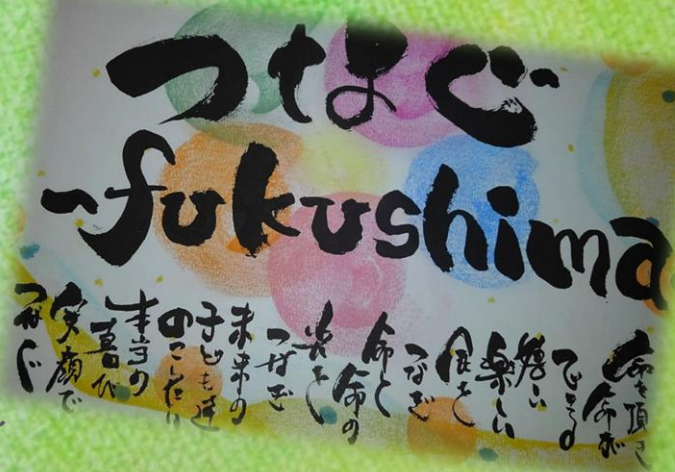 つなぐ~
~fukushima
命を頂き
命が
嬉しい
楽しい
食を
つなぎ
命と
命の
炎を
つなぎ
未来の
子ども達
のこしたい
本当の
喜び
笑顔で
つなぐ